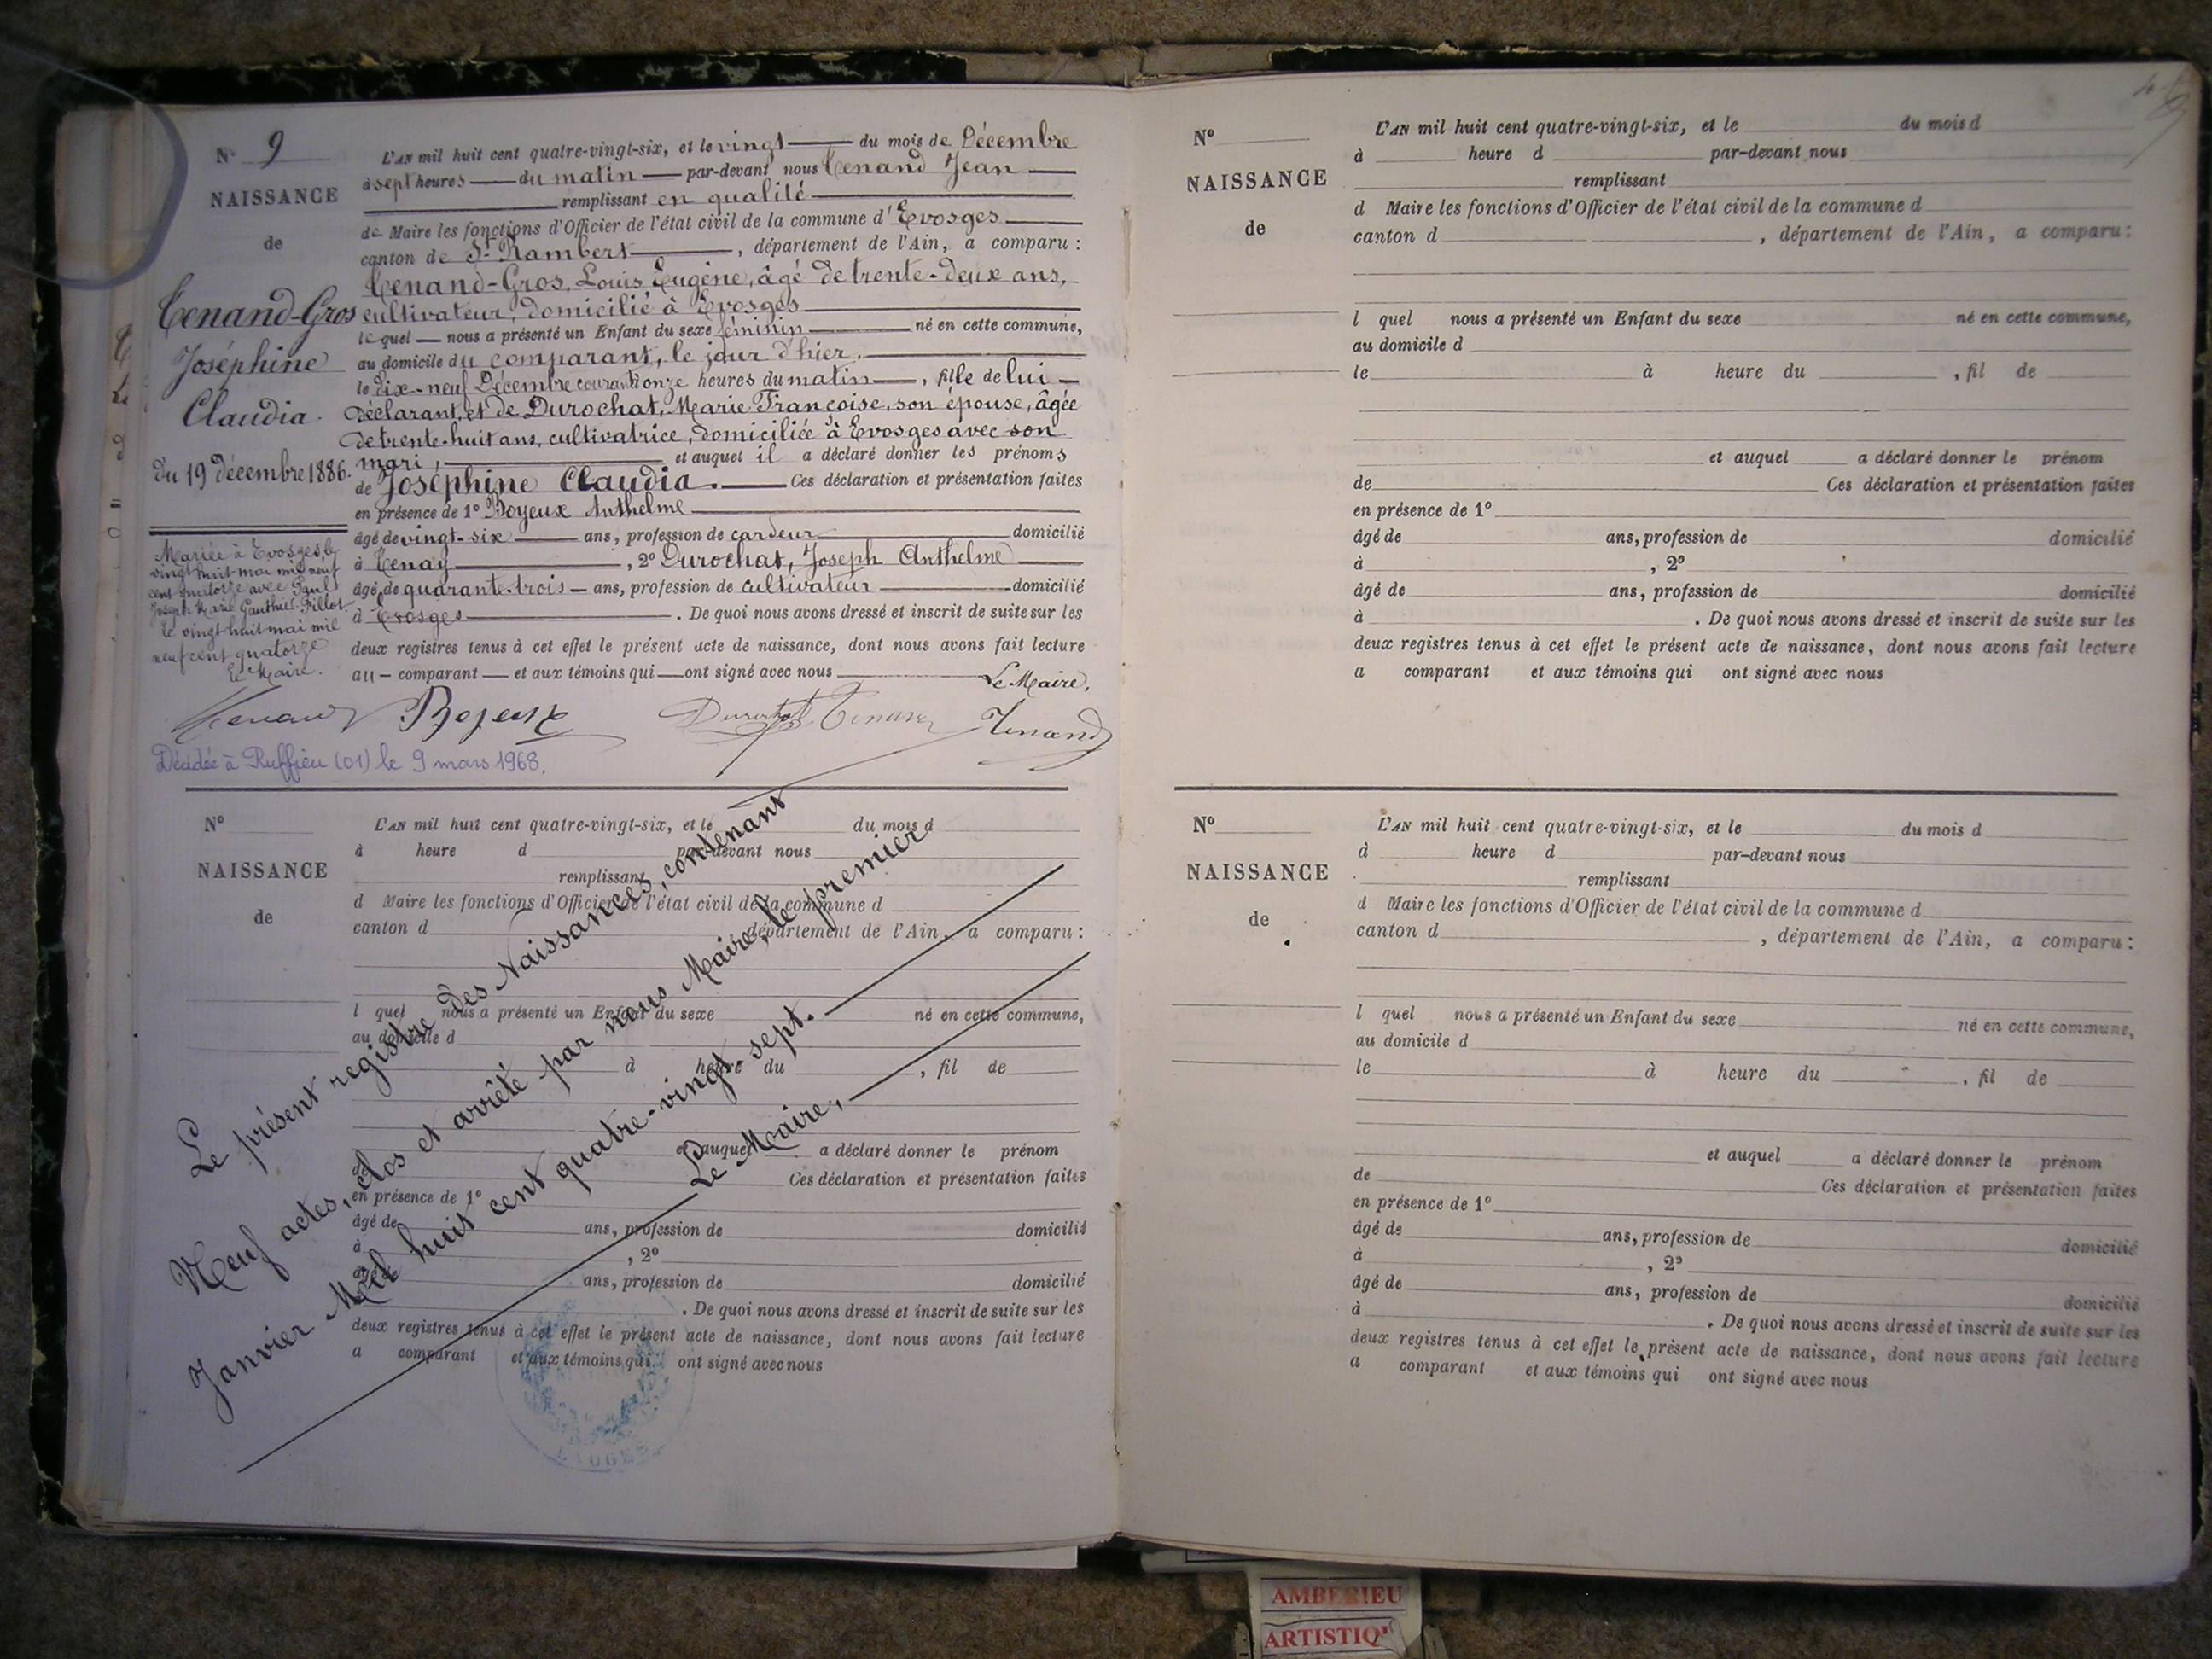 N° 9
NAISSANCE
de
Tenand-Gros
Joséphine
Claudia.
du 19 décembre 1886.
Mariée à Evosges, le
vingt huit mai mil neuf
cent quatorze avec Paul
Joseph Marie Gauthier-Pillot
le vingt huit mai mil
neuf cent quatorze
Le Maire.
L'AN mil huit cent quatre-vingt-six, et le vingt du mois de Décembre
à sept heures du matin par-devant nous Tenand Jean
remplissant en qualité
de Maire les fonctions d'Officier de l'état civil de la commune d'Evosges
canton de St Rambert, département de l'Ain, a comparu :
Tenand-Gros, Louis Eugène, âgé de trente-deux ans,
cultivateur, domicilié à Evosges
lequel nous a présenté un Enfant du sexe féminin né en cette commune,
au domicile du comparant, le jour d'hier,
le dix-neuf Décembre courant à onze heures du matin, fille de lui
Déclarant, et de Durochat, Marie Françoise, son épouse, âgée
de trente-huit ans, cultivatrice, domiciliée à Evosges avec son
mari, et auquel il a déclaré donner les prénoms
de Joséphine Claudia. Ces déclaration et présentation faites
en présence de 1° Boyeux Anthelme
âgé de vingt-six ans, profession de cardeur domicilié
à Tenay, 2° Durochat, Joseph Anthelme
âgé de quarante-trois ans, profession de cultivateur domicilié
à Evosges. De quoi nous avons dressé et inscrit de suite sur les
deux registres tenus à cet effet le présent acte de naissance, dont nous avons fait lecture
au comparant et aux témoins qui ont signé avec nous
Le Maire,
Tenand Boyeux Durochat Tenand
Décédée à Ruffieu (01) le 9 mars 1968.
N°
NAISSANCE
de
L'AN mil huit cent quatre-vingt-six, et le du mois d
à heure d par-devant nous
remplissant
d Maire les fonctions d'Officier de l'état civil de la commune d
canton d , département de l'Ain, a comparu :
l quel nous a présenté un Enfant du sexe né en cette commune,
au domicile d
à heure du , fil de
et auquel a déclaré donner le prénom
de Ces déclaration et présentation faites
en présence de 1°
âgé de ans, profession de domicilié
à , 2°
âgé de ans, profession de domicilié
. De quoi nous avons dressé et inscrit de suite sur les
deux registres tenus à cet effet le présent acte de naissance, dont nous avons fait lecture
a comparant et aux témoins qui ont signé avec nous
Le présent registre des Naissances, contenant
Neuf actes, clos et arrêté par nous Maire, le premier
Janvier Mil huit cent quatre-vingt-sept.
Le Maire,
N°
NAISSANCE
de
L'AN mil huit cent quatre-vingt-six, et le du mois d
à heure d par-devant nous
remplissant
d Maire les fonctions d'Officier de l'état civil de la commune d
canton d , département de l'Ain, a comparu :
l quel nous a présenté un Enfant du sexe né en cette commune,
au domicile d
le à heure du , fil de
et auquel a déclaré donner le prénom
de Ces déclaration et présentation faites
en présence de 1°
âgé de ans, profession de domicilié
à , 2°
âgé de ans, profession de domicilié
à . De quoi nous avons dressé et inscrit de suite sur les
deux registres tenus à cet effet le présent acte de naissance, dont nous avons fait lecture
a comparant et aux témoins qui ont signé avec nous
N°
NAISSANCE
de
L'AN mil huit cent quatre-vingt-six, et le du mois d
à heure d par-devant nous
remplissant
d Maire les fonctions d'Officier de l'état civil de la commune d
canton d , département de l'Ain, a comparu :
l quel nous a présenté un Enfant du sexe né en cette commune,
au domicile d
le à heure du , fil de
et auquel a déclaré donner le prénom
de Ces déclaration et présentation faites
en présence de 1°
âgé de ans, profession de domicilié
à , 2°
âgé de ans, profession de domicilié
à . De quoi nous avons dressé et inscrit de suite sur les
deux registres tenus à cet effet le présent acte de naissance, dont nous avons fait lecture
a comparant et aux témoins qui ont signé avec nous
AMBERIEU
ARTISTIQ